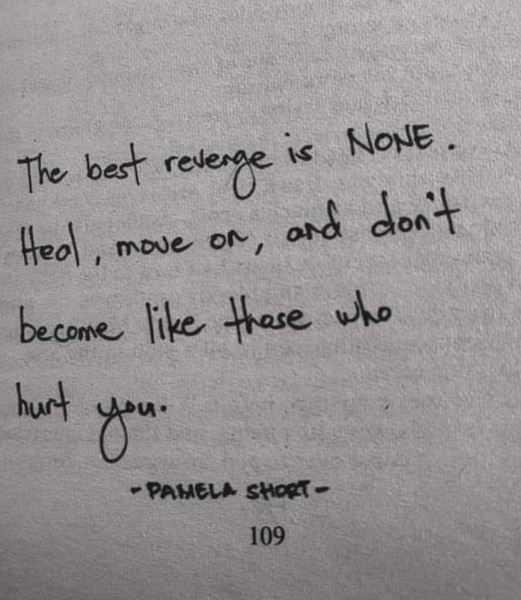 The best revenge is NONE.
Heal, move on, and don't
become like those who
hurt you.
-PAMELA SHORT-
109